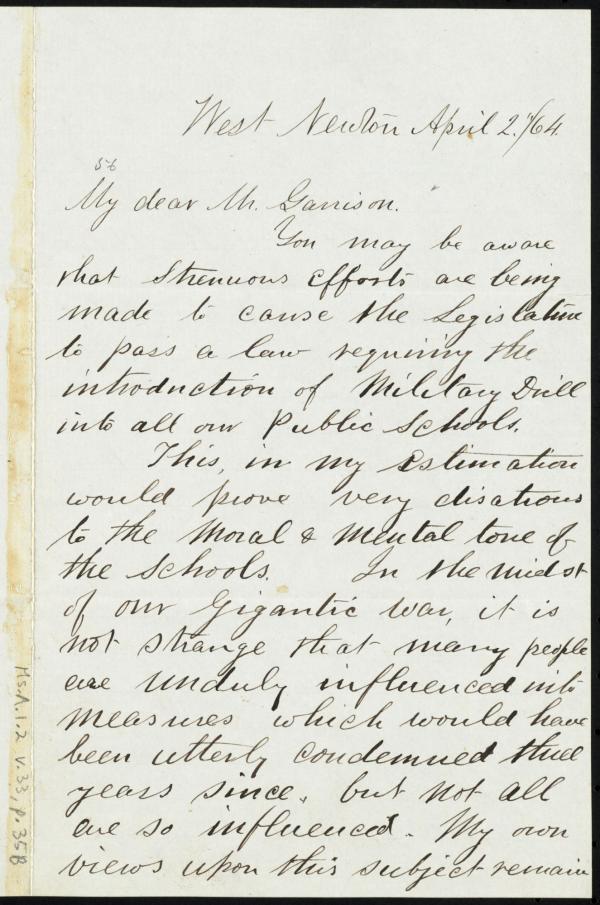 West Newton April 2./64.
56
My dear Mr. Garrison.
You may be aware
that strenuous efforts are being
made to cause the Legislature
to pass a law requiring the
introduction of Military Drill
into all our Public Schools.
This, in my estimation
would prove very disatious
to the Moral & Mental tone of
the Schools. In the midst
of our Gigantic war, it is
not strange that many people
are unduly influenced into
measures which would have
been utterly condemned three
years since, but not all
are so influenced. My own
views upon this subject remain
Ms.A.1.2 v.33, p.35B